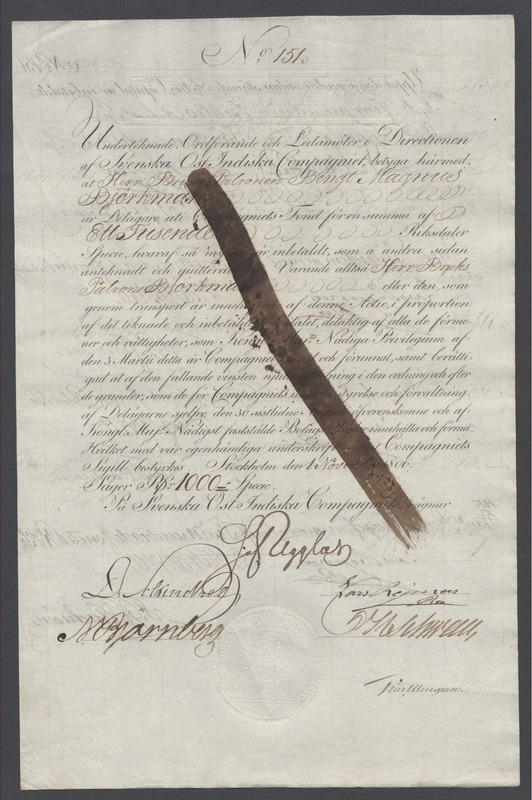 No 151.
Undertecknade, Ordförande och Ledamöter i Directionen
af Svenska Ost-Indiska Compagniet, betyga härmed,
at Herr Bruks Patronen Bengt Magnus
Björkman
är Delägare uti Compagniets Fond för en summa af
Ett Tusende Riksdaler
Specie, hwaraf så är inbetaldt, som å andra sidan
antecknadt och quitteradt Varande altså Herr Bruks
Patron Björkman eller den, som
genom transport är inneh af denne Actie, i proportion
af det teknade och inbetal talet, delaktig af alla de förmo-
ner och rättigheter, som Kong Maj:ts Nådiga Privilegium af
den 3 Martii detta år Compagniet och förunnat, samt berätti-
gad at af den fallande vinsten njuta delning i den ordning och efter
de grunder, som de för Compagniets styrelse och förvaltning
af Delägarne sjelfve, den 30 sistlidne öfverenskomne och af
Kongl. Maj:t Nådigst fastställde Bolags Regler innehålla och förmå
Hvilket med vår egenhändiga underskrift Compagniets
Sigill bestyrkes. Stockholm den 1 November 1806.
Säger Rd:r 1000 Specie.
På Svenska Ost-Indiska Compagniets vägnar
Ugglas
N Björnberg